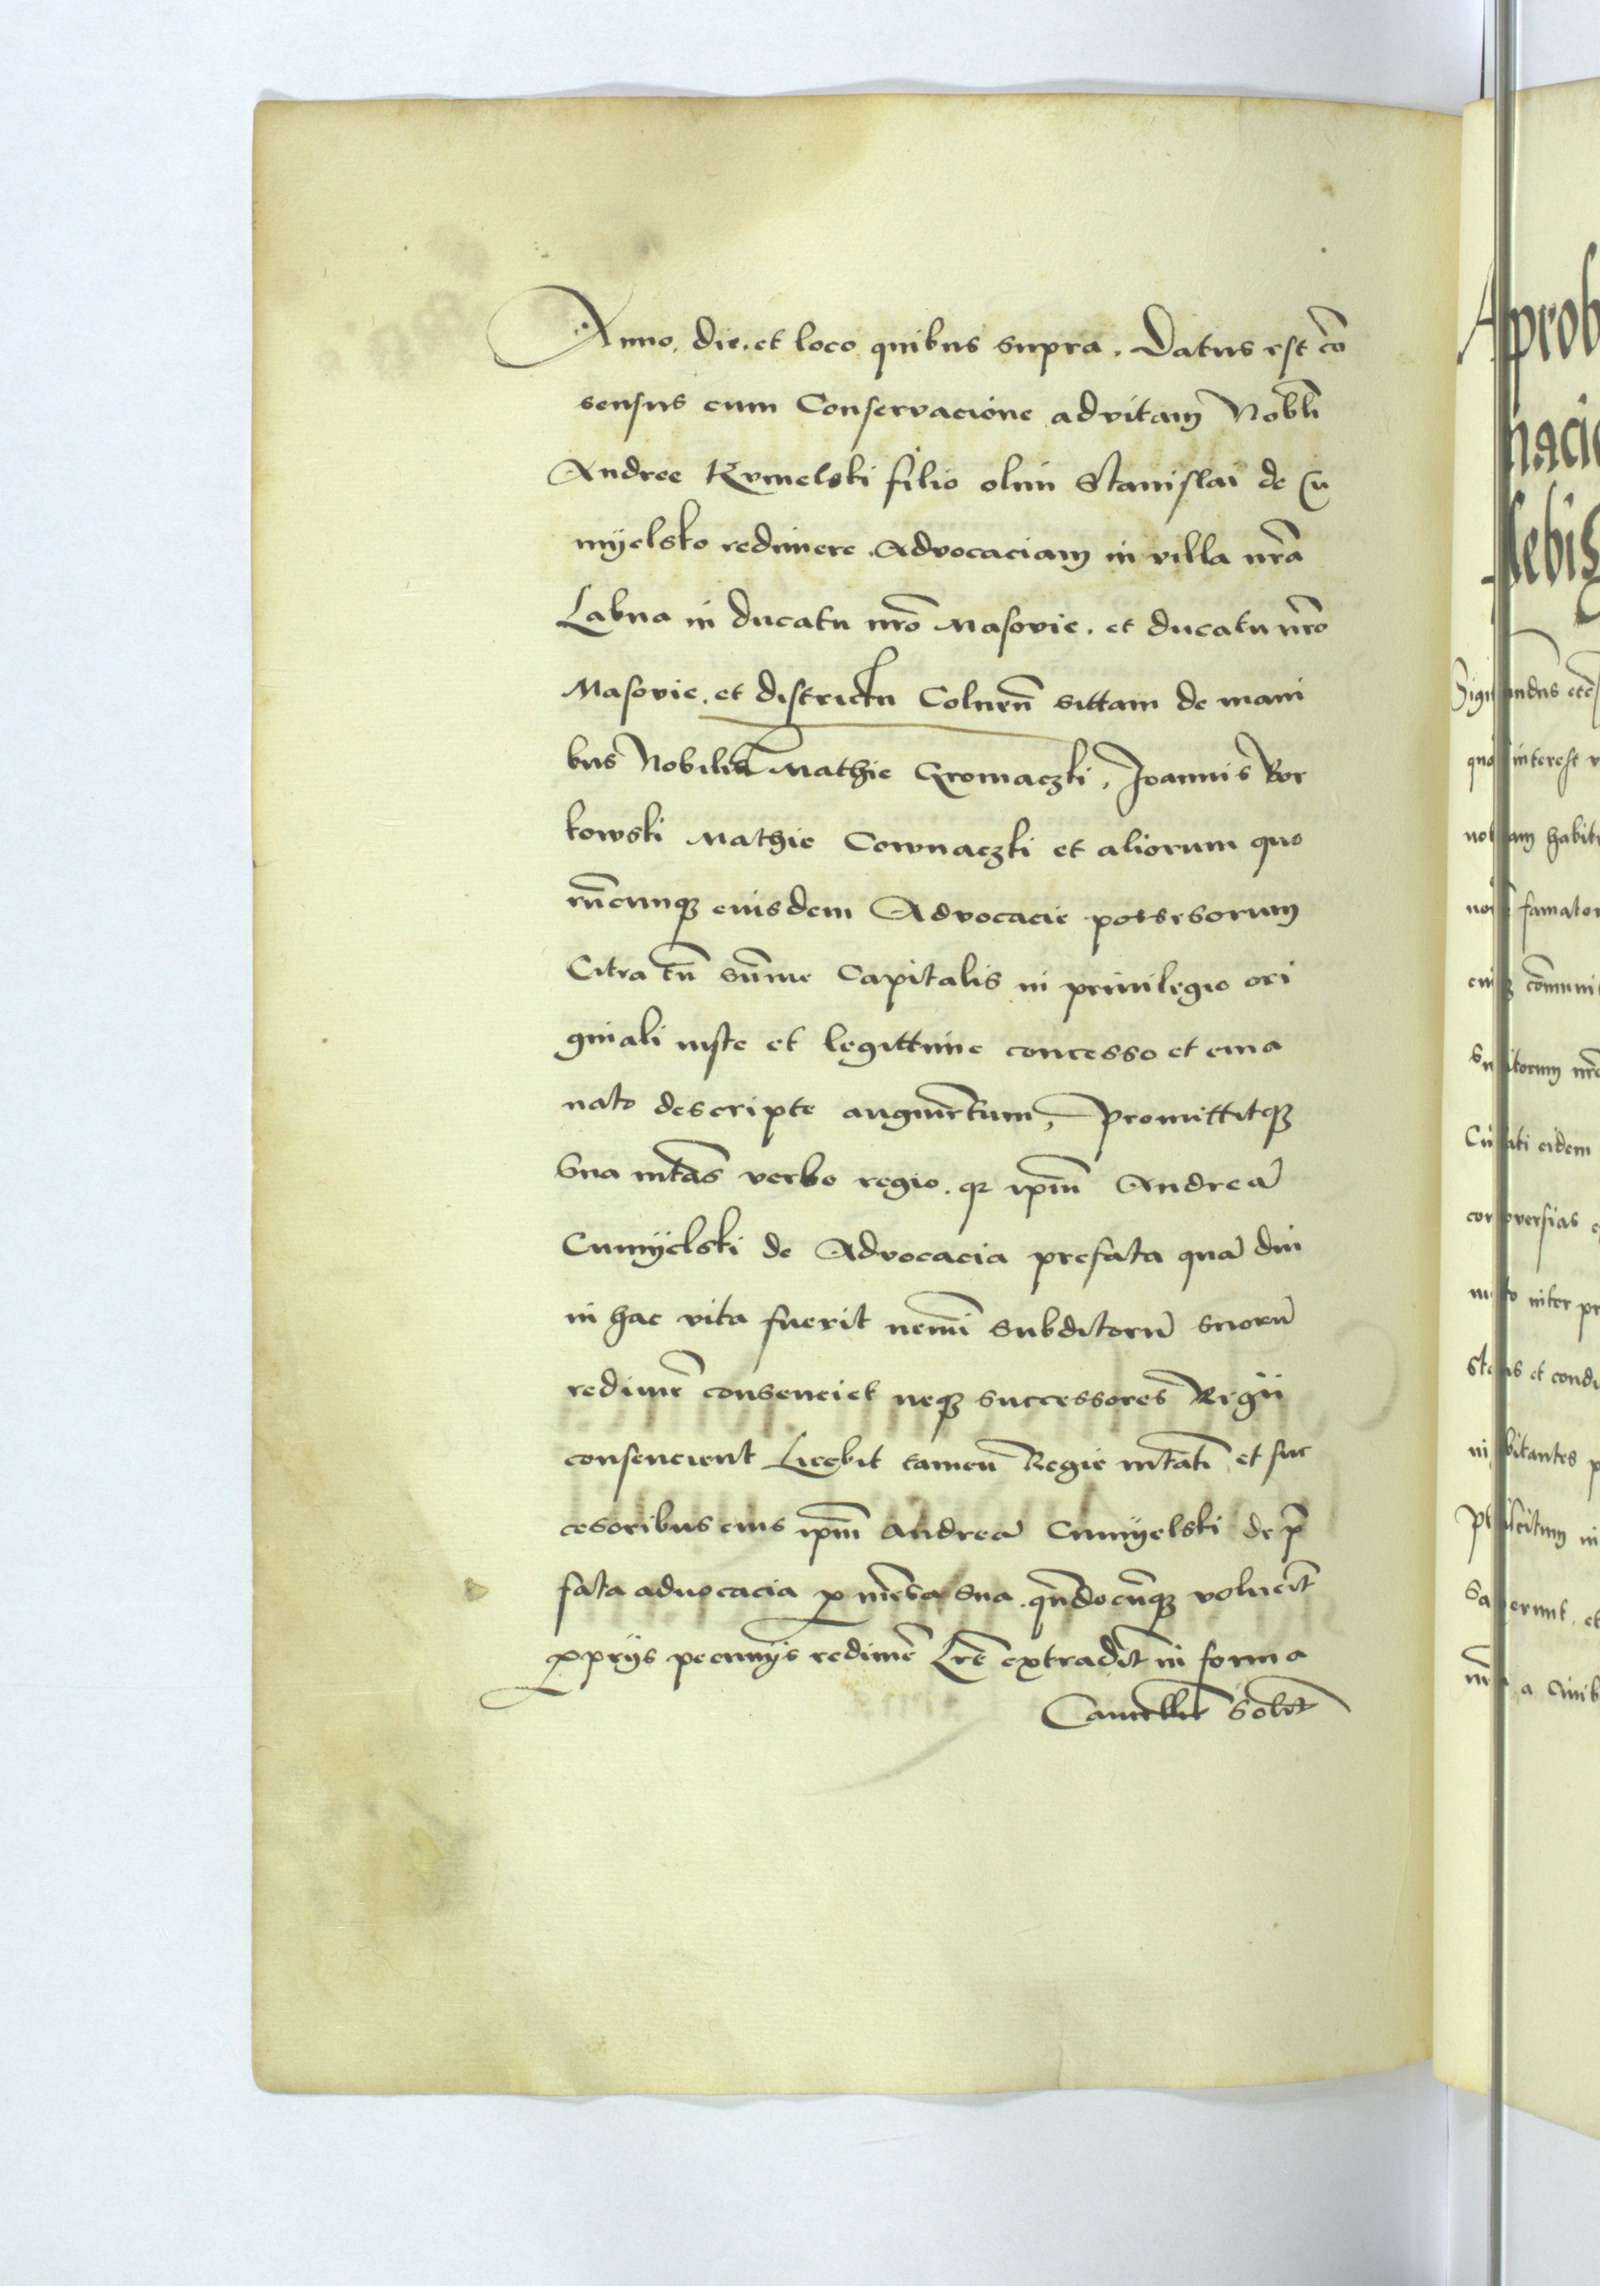 Anno. die. et loco quibus supra. Datus est cō
sensus cum Conservacione ad vitam Nobłi
Andree Kumelski filio olim Stanislai de Cu
myelsko redimere Advocaciam in villa nr̄a
Labna in ducatu nr̄o Masovie. et ducatu nr̄o
Masovie. et districtu Colnen̄ sittam de mani
bus Nobiliū Mathie Gromaczki, Joannis Bor
kowski Mathie Cownaczki et aliorum quo
rūcunqȝ eiusdem Advocacie possesorum
Citra tn̄ sūme Capitalis in privilegio ori
ginali iuste et legittime concesso et ema
nato descripte augmentum, Promittitqȝ
Sua mtās verbo regio. qȝ ipm̄ Andreā
Cumyelski de Advocacia prefata quā diu
in hac vita fuerit nemī subditorū suorū
redimē consenciet neqȝ successores Regii
consencient Licebit tamen Regie mtāti et suc
cesoribus eius ipm̄ Andreā Cumyelski de p̄
fata advocacia
ꝓprijs pecunijs redimē Lr̄e extradit̄ in forma
Cancell̄ Solit̄
Aprob
nacio
Sigi ndus etc̄
qu interest
am habit
famator
cōmuni
itorum nr̄o
ati eidem
oversias
inter pr
et condi
bitantes
scitum in
erunt. et
a Civib